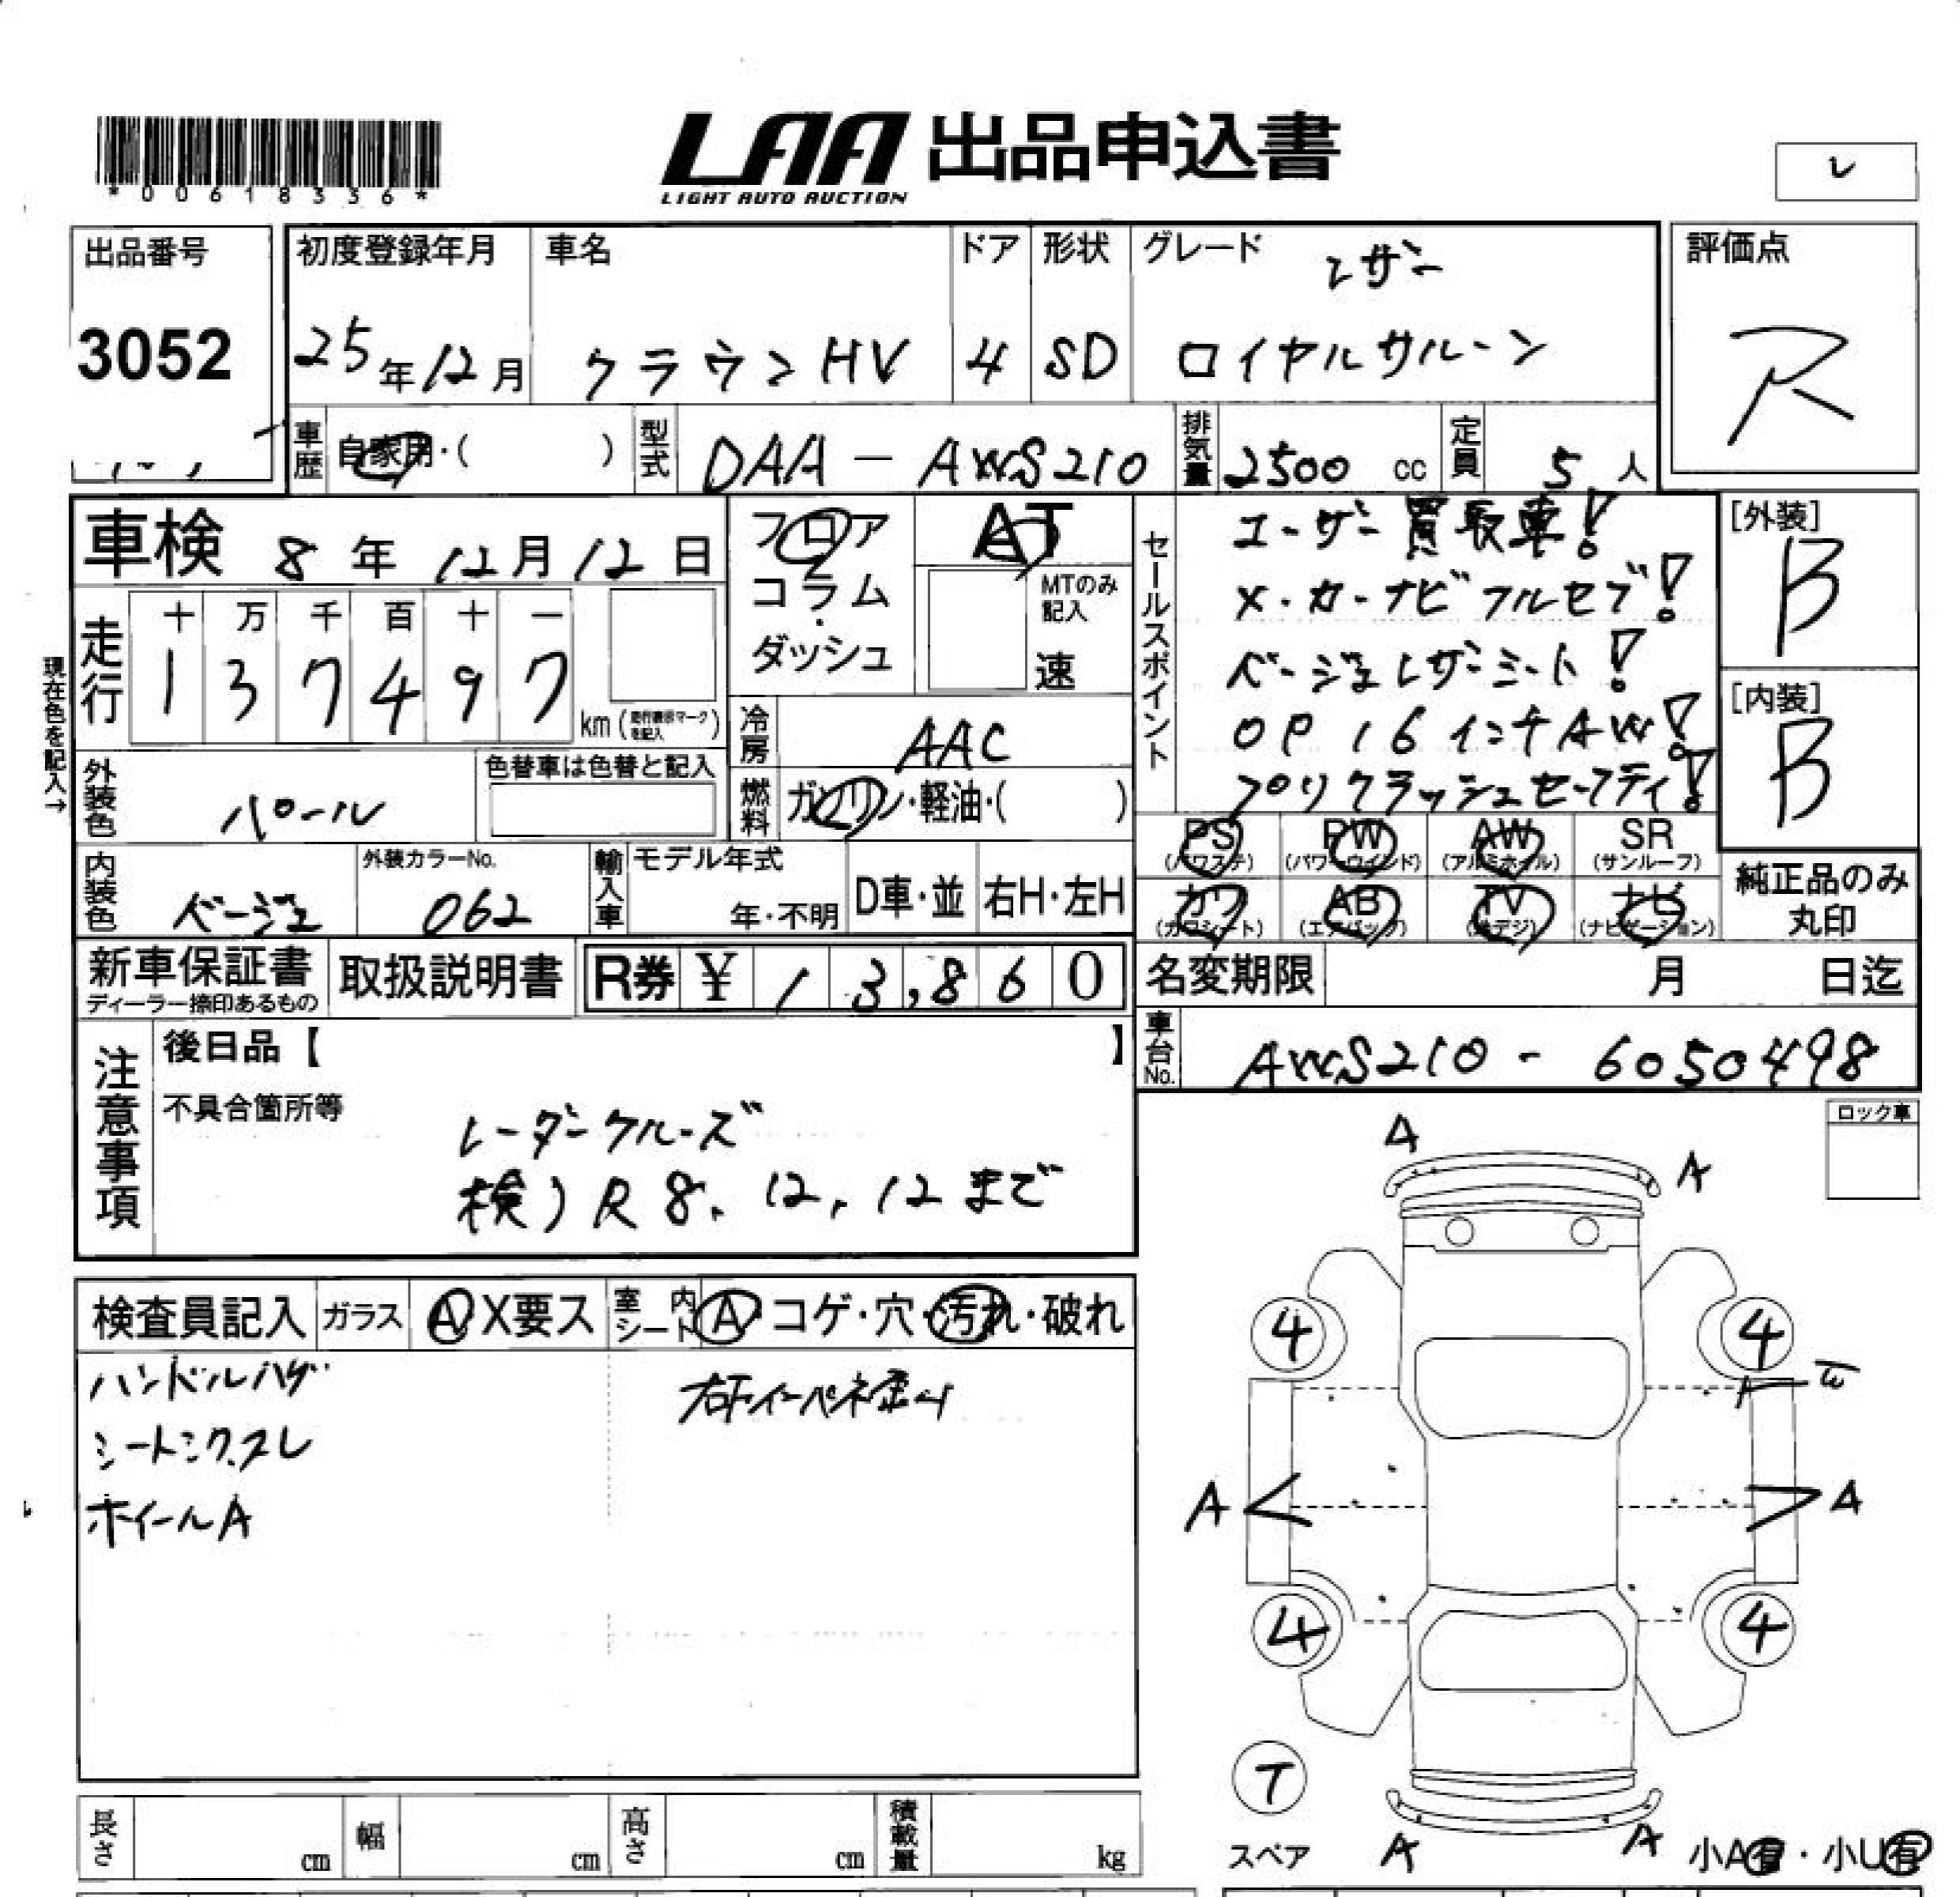 *00618336*
LAA 出品申込書
LIGHT AUTO AUCTION
レ
出品番号
3052
初度登録年月
25年12月
車名
クラウンHV
ドア
4
形状
SD
グレード
レザー
ロイヤルサルーン
評価点
R
車歴
自家用・( )
型式
DAA-AWS210
排気量
2500 cc
定員
5人
車検 8年12月12日
フロア
コラム
ダッシュ
AT
MTのみ
記入
速
セールスポイント
ユーザー買取車!
メ・カーナビフルセグ!
ベージュレザーシート!
OP16インチAW!
プリクラッシュセーフティ!
[外装]
B
[内装]
B
現在色を記入→
走行
十 万 千 百 十 一
1 3 7 4 9 7
km (走行表示マークを記入)
冷房
AAC
外装色
パール
色替車は色替と記入
燃料
ガソリン・軽油・( )
PS
(パワステ)
PW
(パワーウィンド)
AW
(アルミホイル)
SR
(サンルーフ)
カワ
(カワシート)
AB
(エアバック)
TV
(地デジ)
ナビ
(ナビゲーション)
純正品のみ
丸印
内装色
ベージュ
外装カラーNo.
062
輸入車
モデル年式
年・不明
D車・並
右H・左H
新車保証書
ディーラー捺印あるもの
取扱説明書
R券 ¥ 13,860
名変期限 月 日迄
車台No.
AWS210-6050498
注意事項
後日品【 】
不具合箇所等
レーダークルーズ
検)R8.12.12まで
ロック車
検査員記入
ガラス
A X要ス
室内シート
A・コゲ・穴・汚れ・破れ
ハンドルハゲ
シートシワ.スレ
ホイールA
A
A
4
4
A
A
A
4
4
T
スペア
A
A
小A有・小U有
長さ cm
幅 cm
高さ cm
積載量 kg